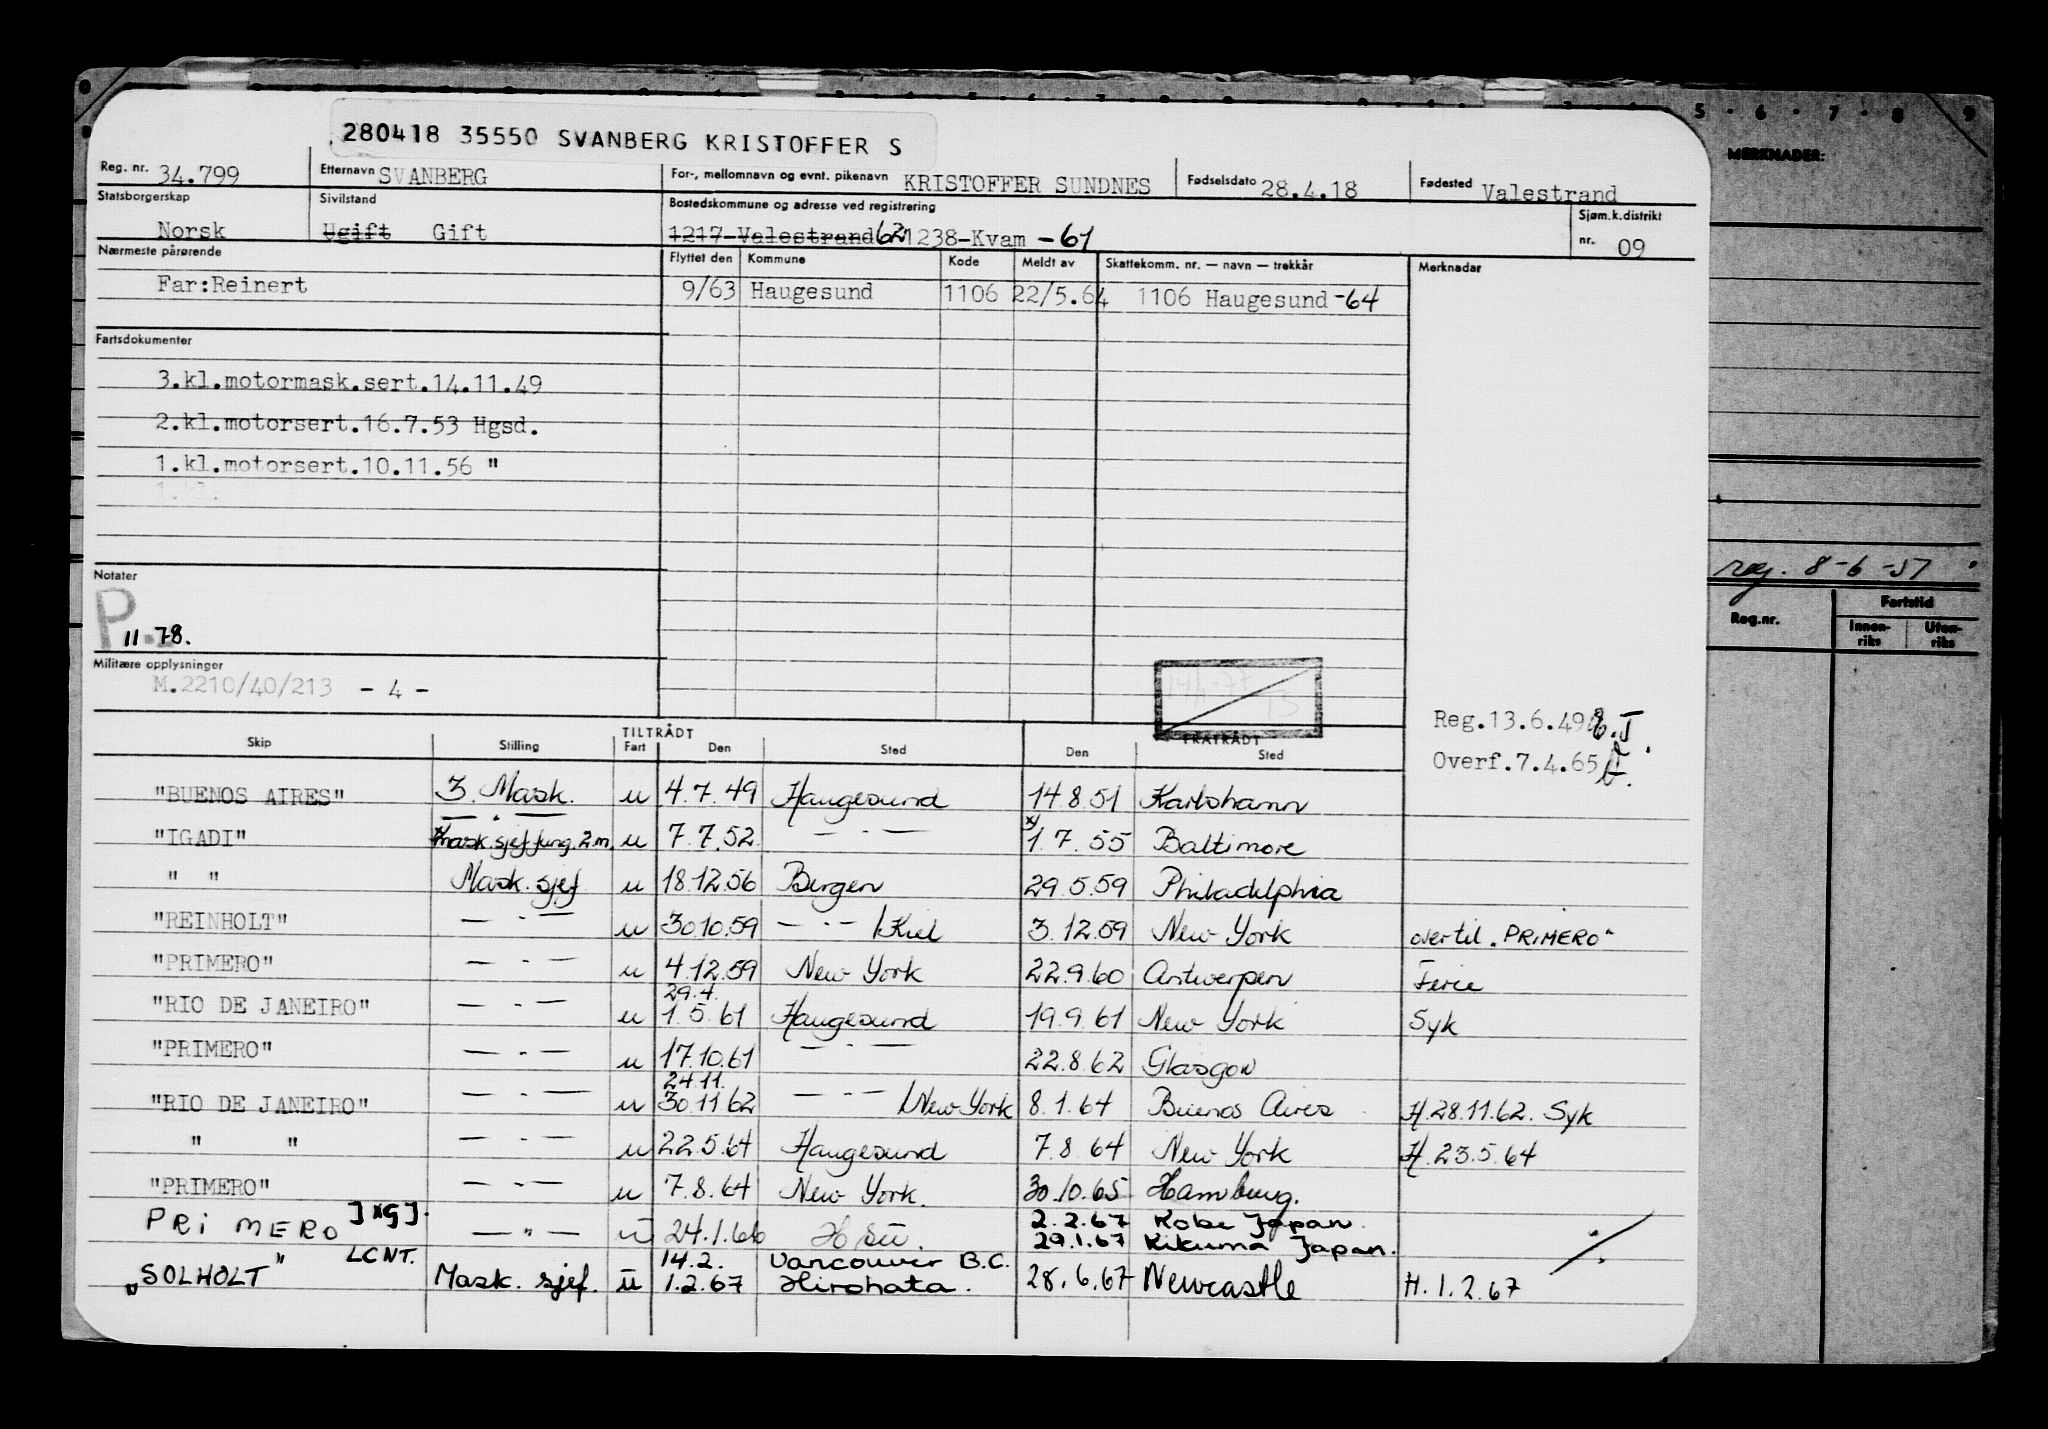 280418 35550 SVANBERG KRISTOFFER S
Reg. nr. 34.799 Etternavn SVANBERG For-, mellomnavn og evnt. pikenavn KRISTOFFER SUNDNES Fødselsdato 28.4.18 Fødested Valestrand
Statsborgerskap Sivilstand Bostedskommune og adresse ved registrering Sjøm.k.distrikt
Norsk Ugift Gift 1217-Valestrand 62 1238-Kvam -61 nr. 09
Nærmeste pårørende Flyttet den Kommune Kode Meldt av Skattekomm. nr. — navn — trekkår Merknader
Far:Reinert 9/63 Haugesund 1106 22/5.64 1106 Haugesund -64
Fartsdokumenter
3.kl.motormask.sert.14.11.49
2.kl.motorsert.16.7.53 Hgsd.
1.kl.motorsert.10.11.56 "
1.kl.
Notater
P
11-78.
Militære opplysninger
M.2210/40/213 - 4 -
Reg.13.6.49
Overf.7.4.65
TILTRÅDT FRATRÅDT
Skip Stilling Fart Den Sted Den Sted
"BUENOS AIRES" 3. Mask. u 4.7.49 Haugesund 14.8.51 Karlshamn
"IGADI" — " — x) mask.sjef fung. 2 m. u 7.7.52 — " — x) 1.7.55 Baltimore
" " Mask. sjef u 18.12.56 Bergen 29.5.59 Philadelphia
"REINHOLT" — " — u 30.10.59 — " — /Kiel 3.12.59 New York over til "PRIMERO"
"PRIMERO" — " — u 4.12.59 New York 22.9.60 Antwerpen Ferie
29.4.
"RIO DE JANEIRO" — " — u 1.5.61 Haugesund 19.9.61 New York Syk
"PRIMERO" — " — u 17.10.61 — " — 22.8.62 Glasgow
24.11.
"RIO DE JANEIRO" — " — u 30.11.62 — " — /New York 8.1.64 Buenos Aires H.28.11.62. Syk
" " — " — u 22.5.64 Haugesund 7.8.64 New York H.23.5.64
"PRIMERO" — " — u 7.8.64 New York. 30.10.65 Hamburg.
2.2.67 Kobe Japan.
PRIMERO JXGJ. — " — u 24.1.66 29.1.67 Kikuma Japan.
LCNT. 14.2. Vancouver B.C.
"SOLHOLT" Mask. sjef. u 1.2.67 Hirohata. 28.6.67 Newcastle H. 1.2.67
5 6 7 8 9
MERKNADER:
reg. 8-6-51
Fartstid
Reg.nr. Innen-riks Uten-riks